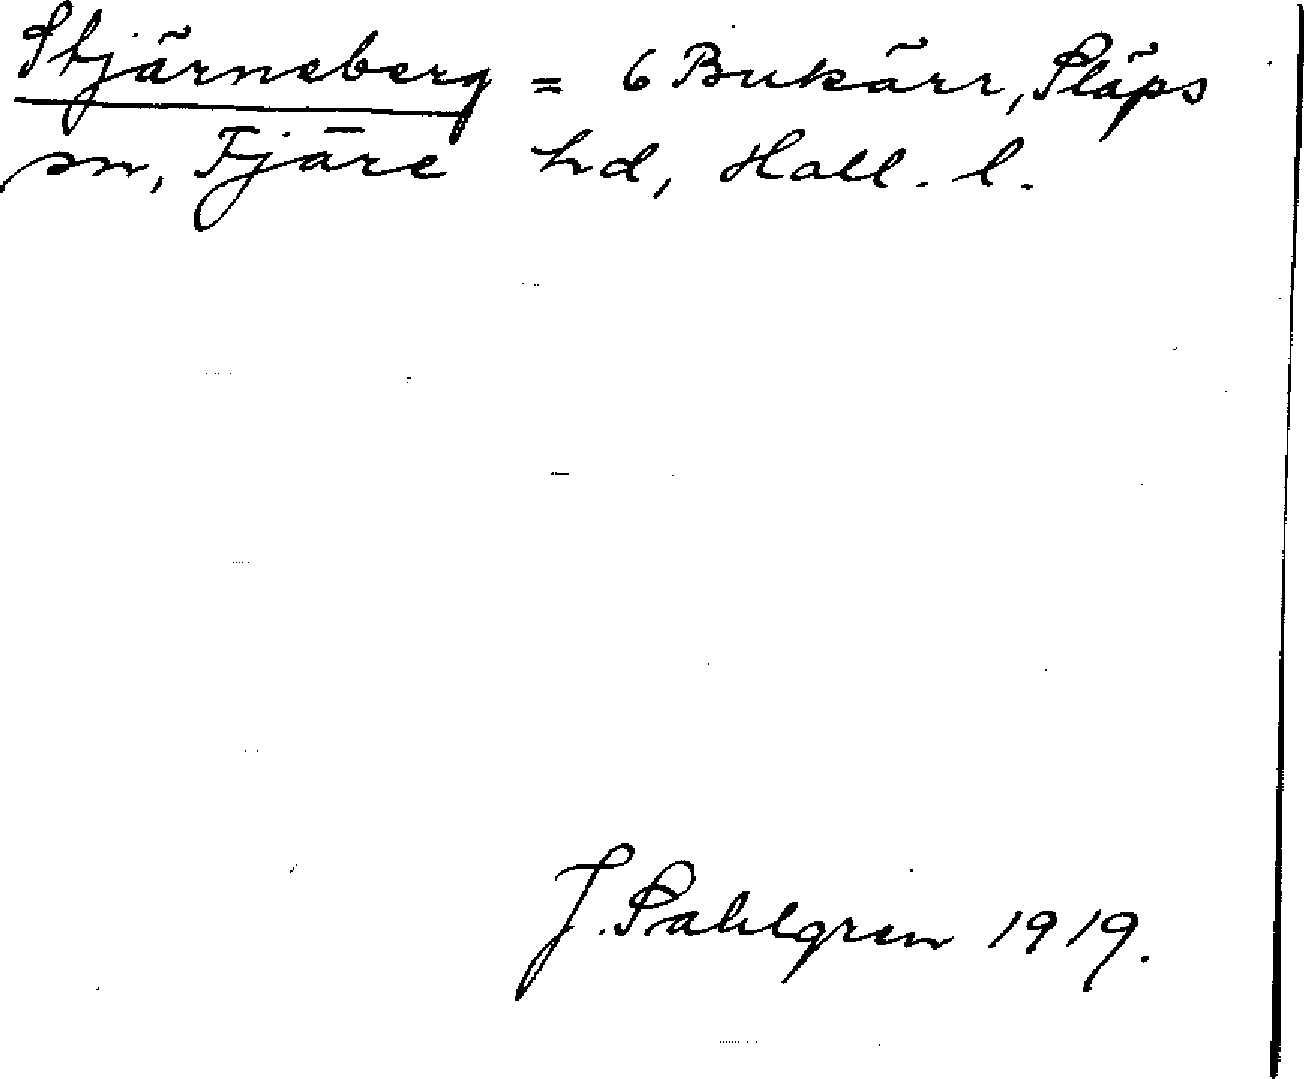 Stjärneberg = 6 Bukärr, Släps
sn, Fjäre hd, Hall. l.
J. Sahlgren 1919.